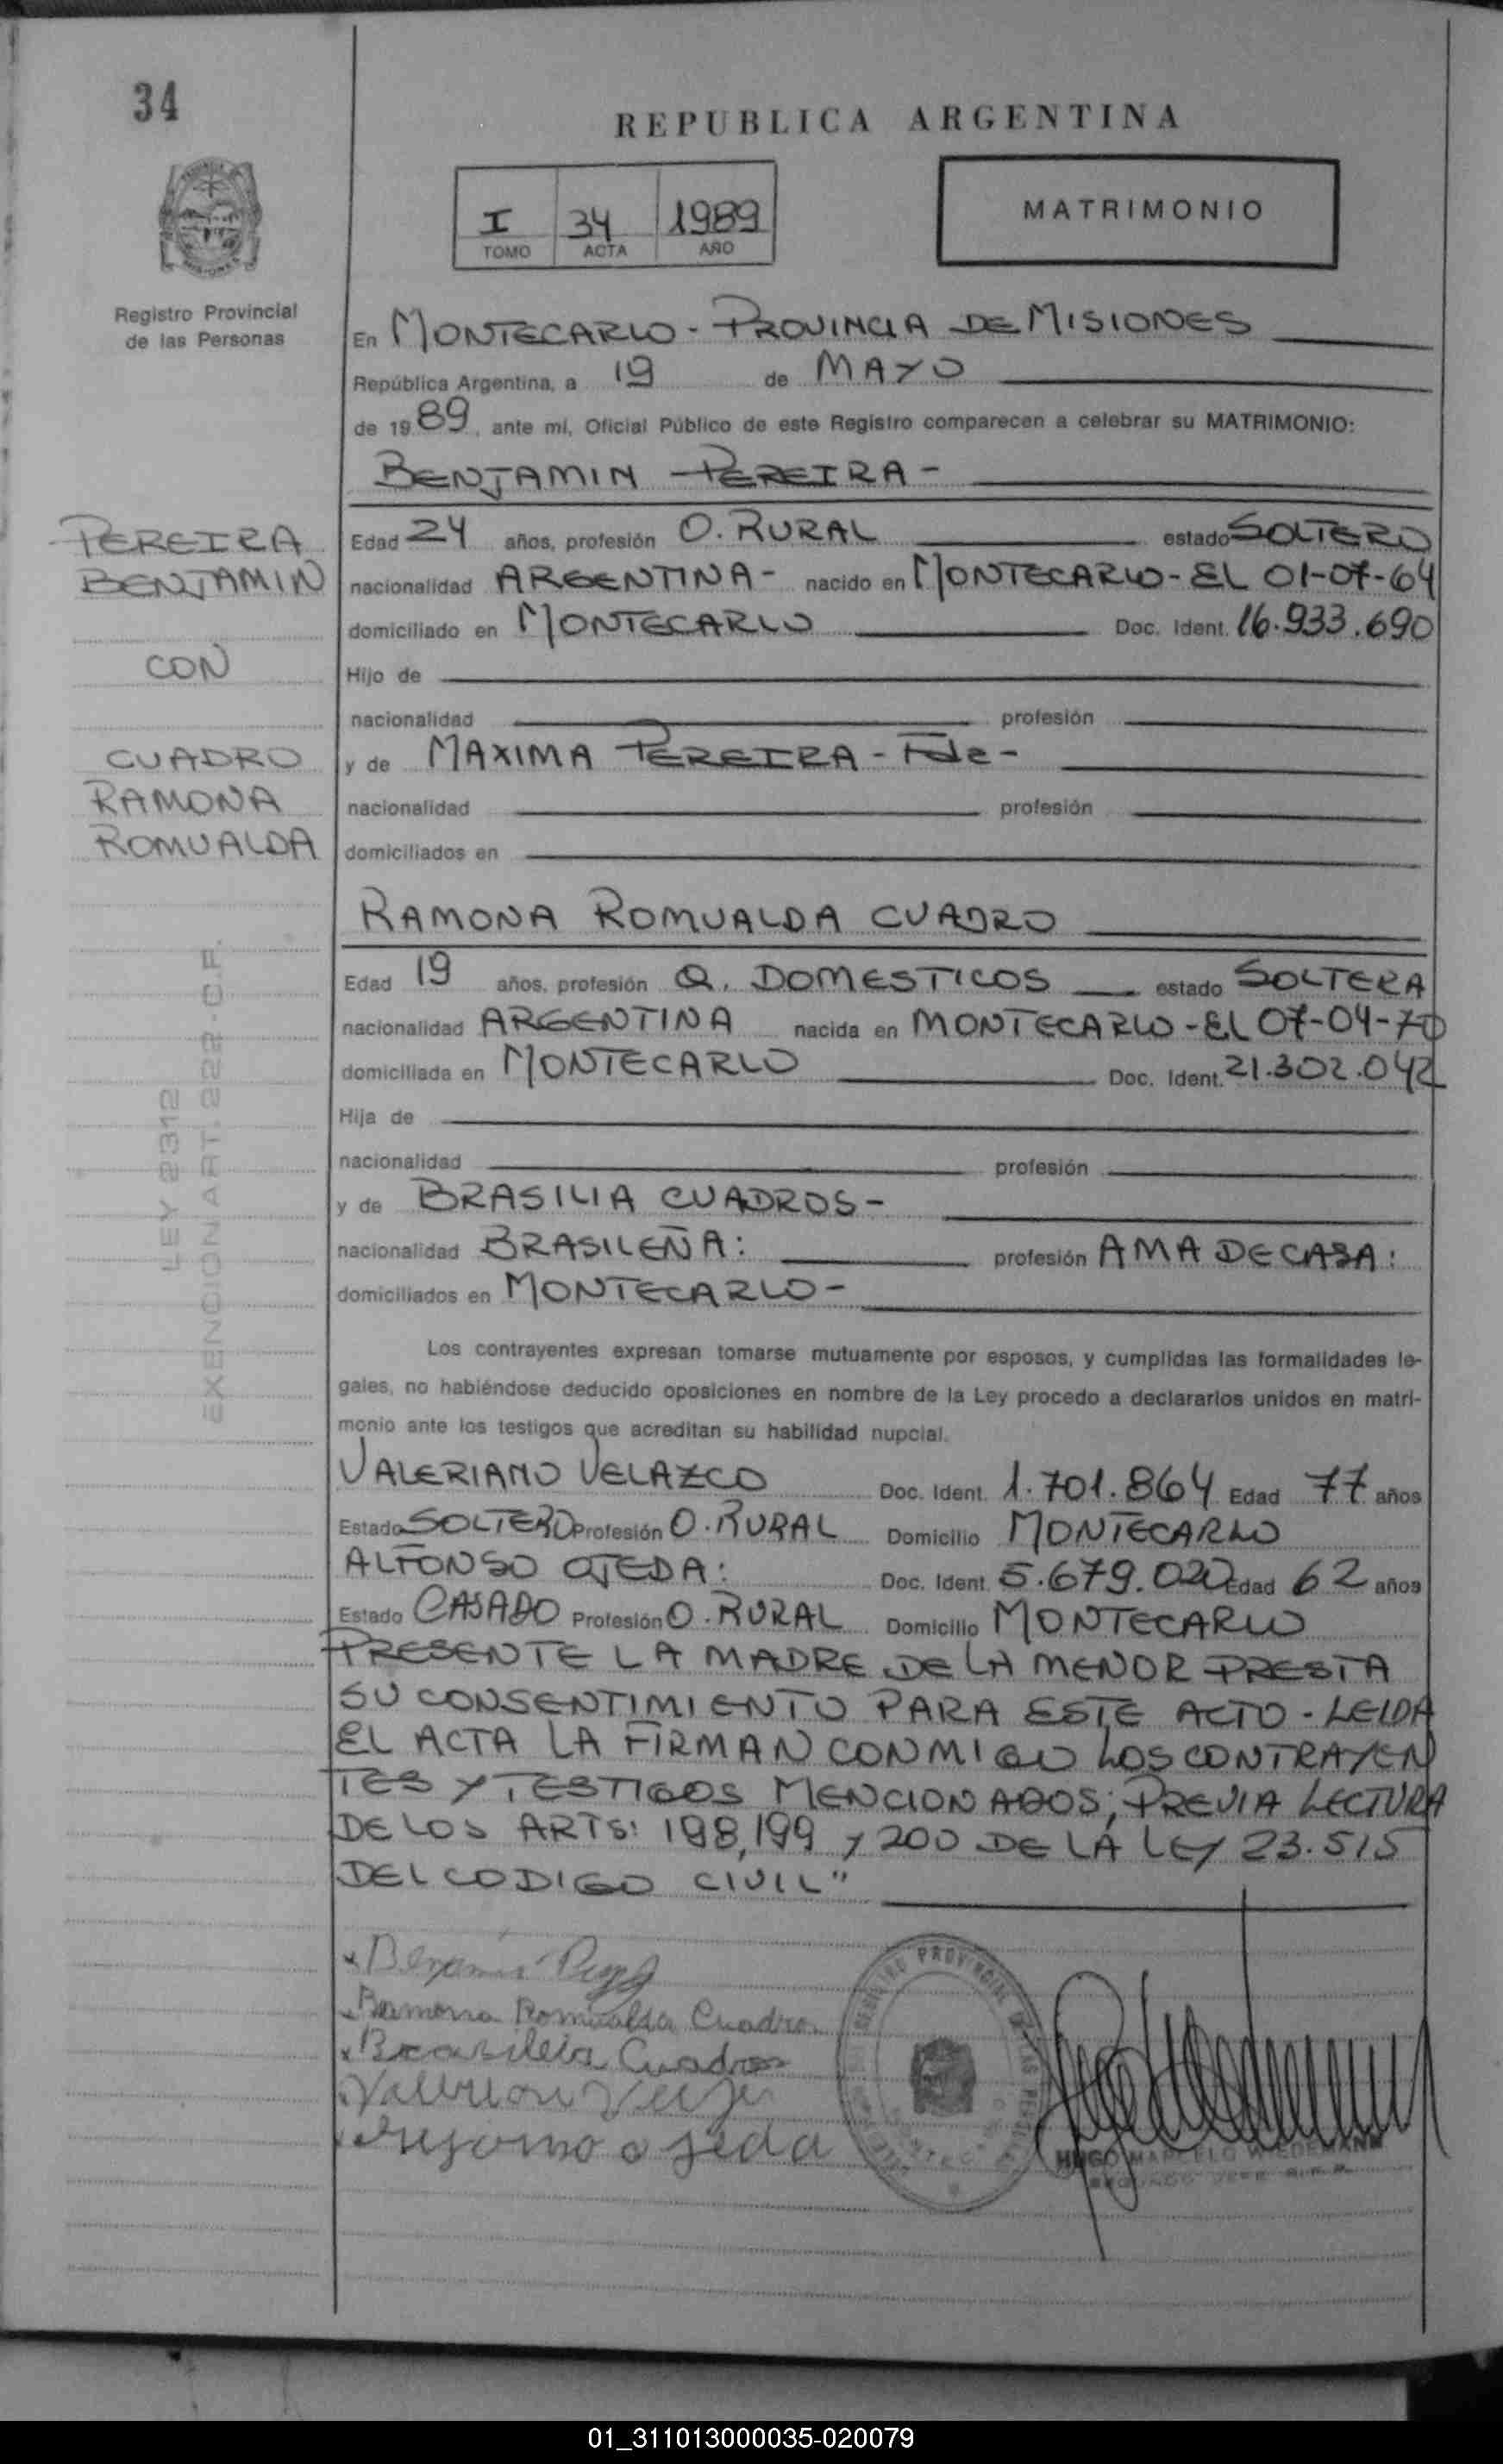 34
REPUBLICA ARGENTINA
I 34 1989
TOMO ACTA AÑO
MATRIMONIO
Registro Provincial
de las Personas
En MONTECARLO - PROVINCIA DE MISIONES
República Argentina, a 19 de MAYO
de 1989, ante mí, Oficial Público de este Registro comparecen a celebrar su MATRIMONIO:
BENJAMIN PEREIRA -
PEREIRA
BENJAMIN
CON
CUADRO
RAMONA
ROMUALDA
Edad 24 años, profesión O. RURAL estado SOLTERO
nacionalidad ARGENTINA - nacido en MONTECARLO - EL 01-07-64
domiciliado en MONTECARLO Doc. Ident. 16.933.690
Hijo de
nacionalidad profesión
y de MAXIMA PEREIRA -
nacionalidad profesión
domiciliados en
RAMONA ROMUALDA CUADRO
Edad 19 años, profesión Q. DOMESTICOS estado SOLTERA
nacionalidad ARGENTINA nacida en MONTECARLO - EL 07-04-70
domiciliada en MONTECARLO Doc. Ident. 21.302.042
Hija de
nacionalidad profesión
y de BRASILIA CUADROS -
nacionalidad BRASILEÑA: profesión AMA DE CASA:
domiciliados en MONTECARLO -
LEY 2312
EXENCION ART. 222 - C.F.
Los contrayentes expresan tomarse mutuamente por esposos, y cumplidas las formalidades le-
gales, no habiéndose deducido oposiciones en nombre de la Ley procedo a declararlos unidos en matri-
monio ante los testigos que acreditan su habilidad nupcial.
VALERIANO VELAZCO Doc. Ident. 1.701.864 Edad 77 años
Estado SOLTERO Profesión O. RURAL Domicilio MONTECARLO
ALFONSO OJEDA: Doc. Ident. 5.679.020 Edad 62 años
Estado CASADO Profesión O. RURAL Domicilio MONTECARLO
PRESENTE LA MADRE DE LA MENOR PRESTA
SU CONSENTIMIENTO PARA ESTE ACTO - LEIDA
EL ACTA LA FIRMAN CONMIGO LOS CONTRAYEN
TES Y TESTIGOS MENCIONADOS, PREVIA LECTURA
DE LOS ARTS: 198, 199 y 200 DE LA LEY 23.515
DEL CODIGO CIVIL"
Ramona Romualda Cuadro
Cuadros
ojeda
REGISTRO PROVINCIAL DE LAS PERSONAS
HUGO MARCELO WIEDEMANN
01_311013000035-020079